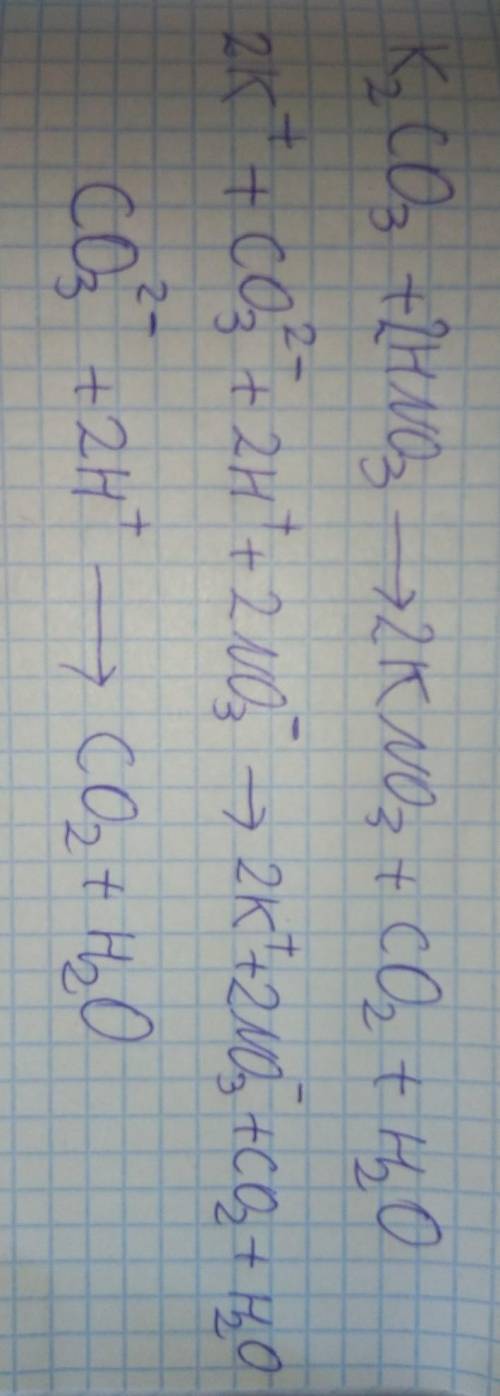 K₂CO₃ + 2HNO₃ → 2KNO₃ + CO₂ + H₂O
2K⁺ + CO₃²⁻ + 2H⁺ + 2NO₃⁻ → 2K⁺ + 2NO₃⁻ + CO₂ + H₂O
CO₃²⁻ + 2H⁺ → CO₂ + H₂O